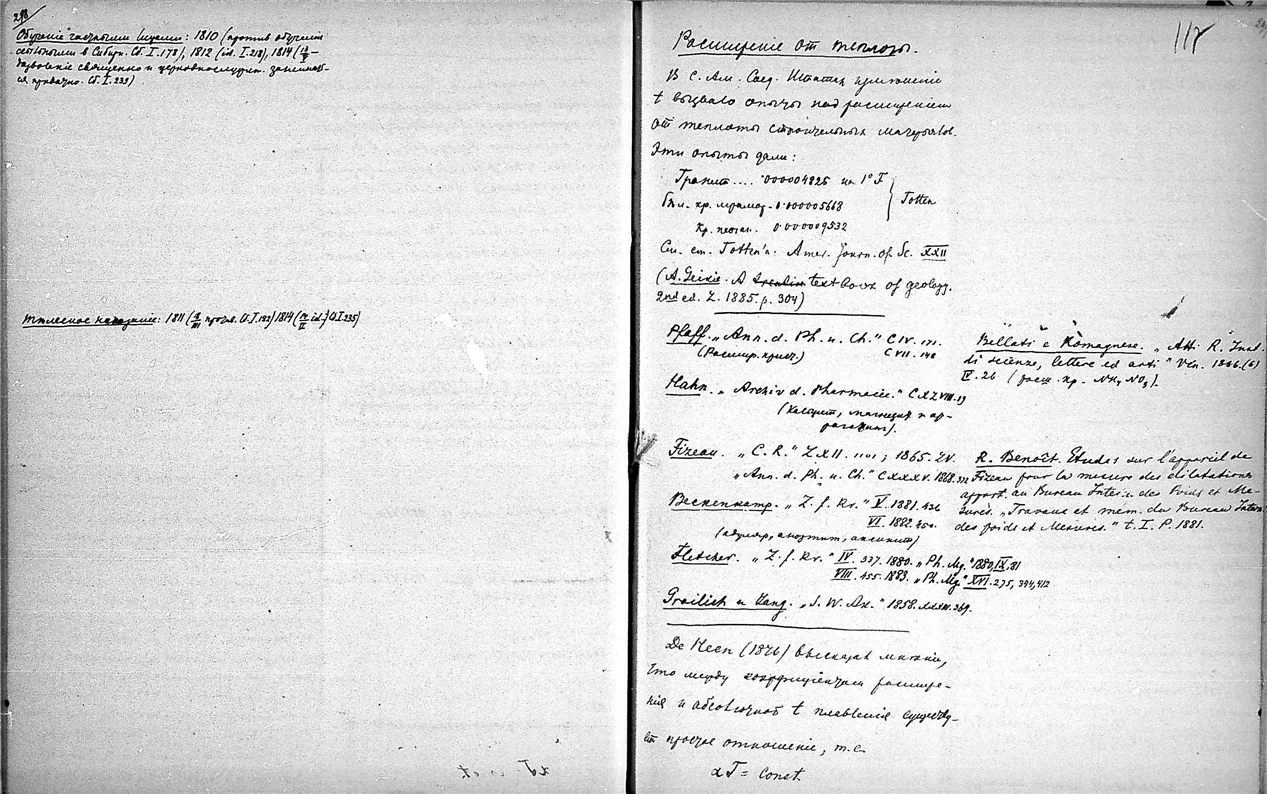 298
Обученіе частными лицами: 1810 (против обученія
ссыльными в Сибири. Сб. I. 178), 1812 (id. I. 218), 1814 (
священно и церковнослужит.
Сб. I. 233)
Тѣлесное наказаніе: 1811 ( I. 192) 1814 ( id.) I 235)
117
Расширеніе от теплоты.
В С. Ам. Соед. Штатах измѣненіе
t вызвало опыты над расширеніем
от теплоты строительных матерьялов.
Эти опыты дали:
Гранит .... ·000004825 на 1° F
бѣл. кр. мрамор. 0·000005668
Totten
кр. песчан. 0·000009532
См. ст. Totten'а. Amer. Journ. of Sc. XXII
(A. Geikie. A text book of geology.
2nd ed. L. 1885. p. 304)
Pfaff. „Ann. d. Ph. u. Ch." CIV. 171.
(Расшир. крист.) CVII. 148
Hahn. „Archiv d. Pharmacie." CXLVIII. 19
(Кальцит, магнезит и ар-
рагонит).
Fizeau. „C. R." LXII. 1101; 1865. LV.
„Ann. d. Ph. u. Ch." CXXXV. 1868. 372
Beckenkamp. „Z. f. Kr." V. 1881. 436
VI. 1882. 450.
(адуляр, анортит, аксинит)
Fletcher. „Z. f. Kr." IV. 337. 1880. „Ph. Mg." 1880, IX, 81
VIII. 455. 1883. „Ph. Mg." XVI. 275, 344, 412
Grailich u Lang. „S. W. Ak." 1858. XXXIII. 369.
Bellati e Romagnese. „Atti R. Inst.
di scienze, lettere ed arti" Ven. 1886. (6)
IV. 26 (расш. кр. NH4 NO3).
R. Benoît. Etudes sur l'appareil de
Fizeau pour la mesure des dilatations
appart. au Bureau Intern. des Poids et Me-
sures. „Travaux et mém. du Bureau Intern.
des poids et Mesures." t. I. P. 1881.
De Heen (1876) высказал мнѣніе,
что между коэффиціентом расшире-
нія и абсолютной t плавленія существу-
ет простое отношеніе, т.е.
αT = Const.